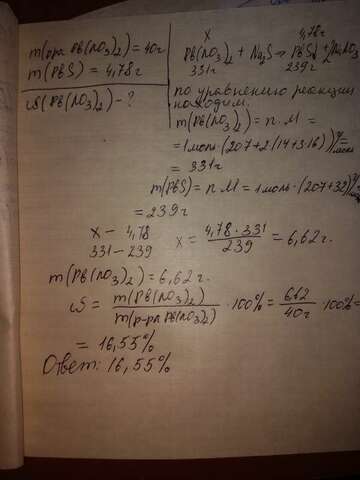 m(р-ра Pb(NO₃)₂) = 40г
m(PbS) = 4,78г
ω(Pb(NO₃)₂) - ?
x 4,78г
Pb(NO₃)₂ + Na₂S → PbS↓ + 2NaNO₃
331г 239г
по уравнению реакции
находим:
m(Pb(NO₃)₂) = n·M =
= 1моль·(207+2(14+3·16))г/моль =
= 331г
m(PbS) = n·M = 1моль·(207+32)г/
= 239г
x – 4,78
331 – 239
x = 4,78·331 / 239 = 6,62г.
m(Pb(NO₃)₂) = 6,62г.
ω = m(Pb(NO₃)₂) / m(р-ра Pb(NO₃)₂) · 100% = 6,62 / 40г · 100% =
= 16,55%
Ответ: 16,55%